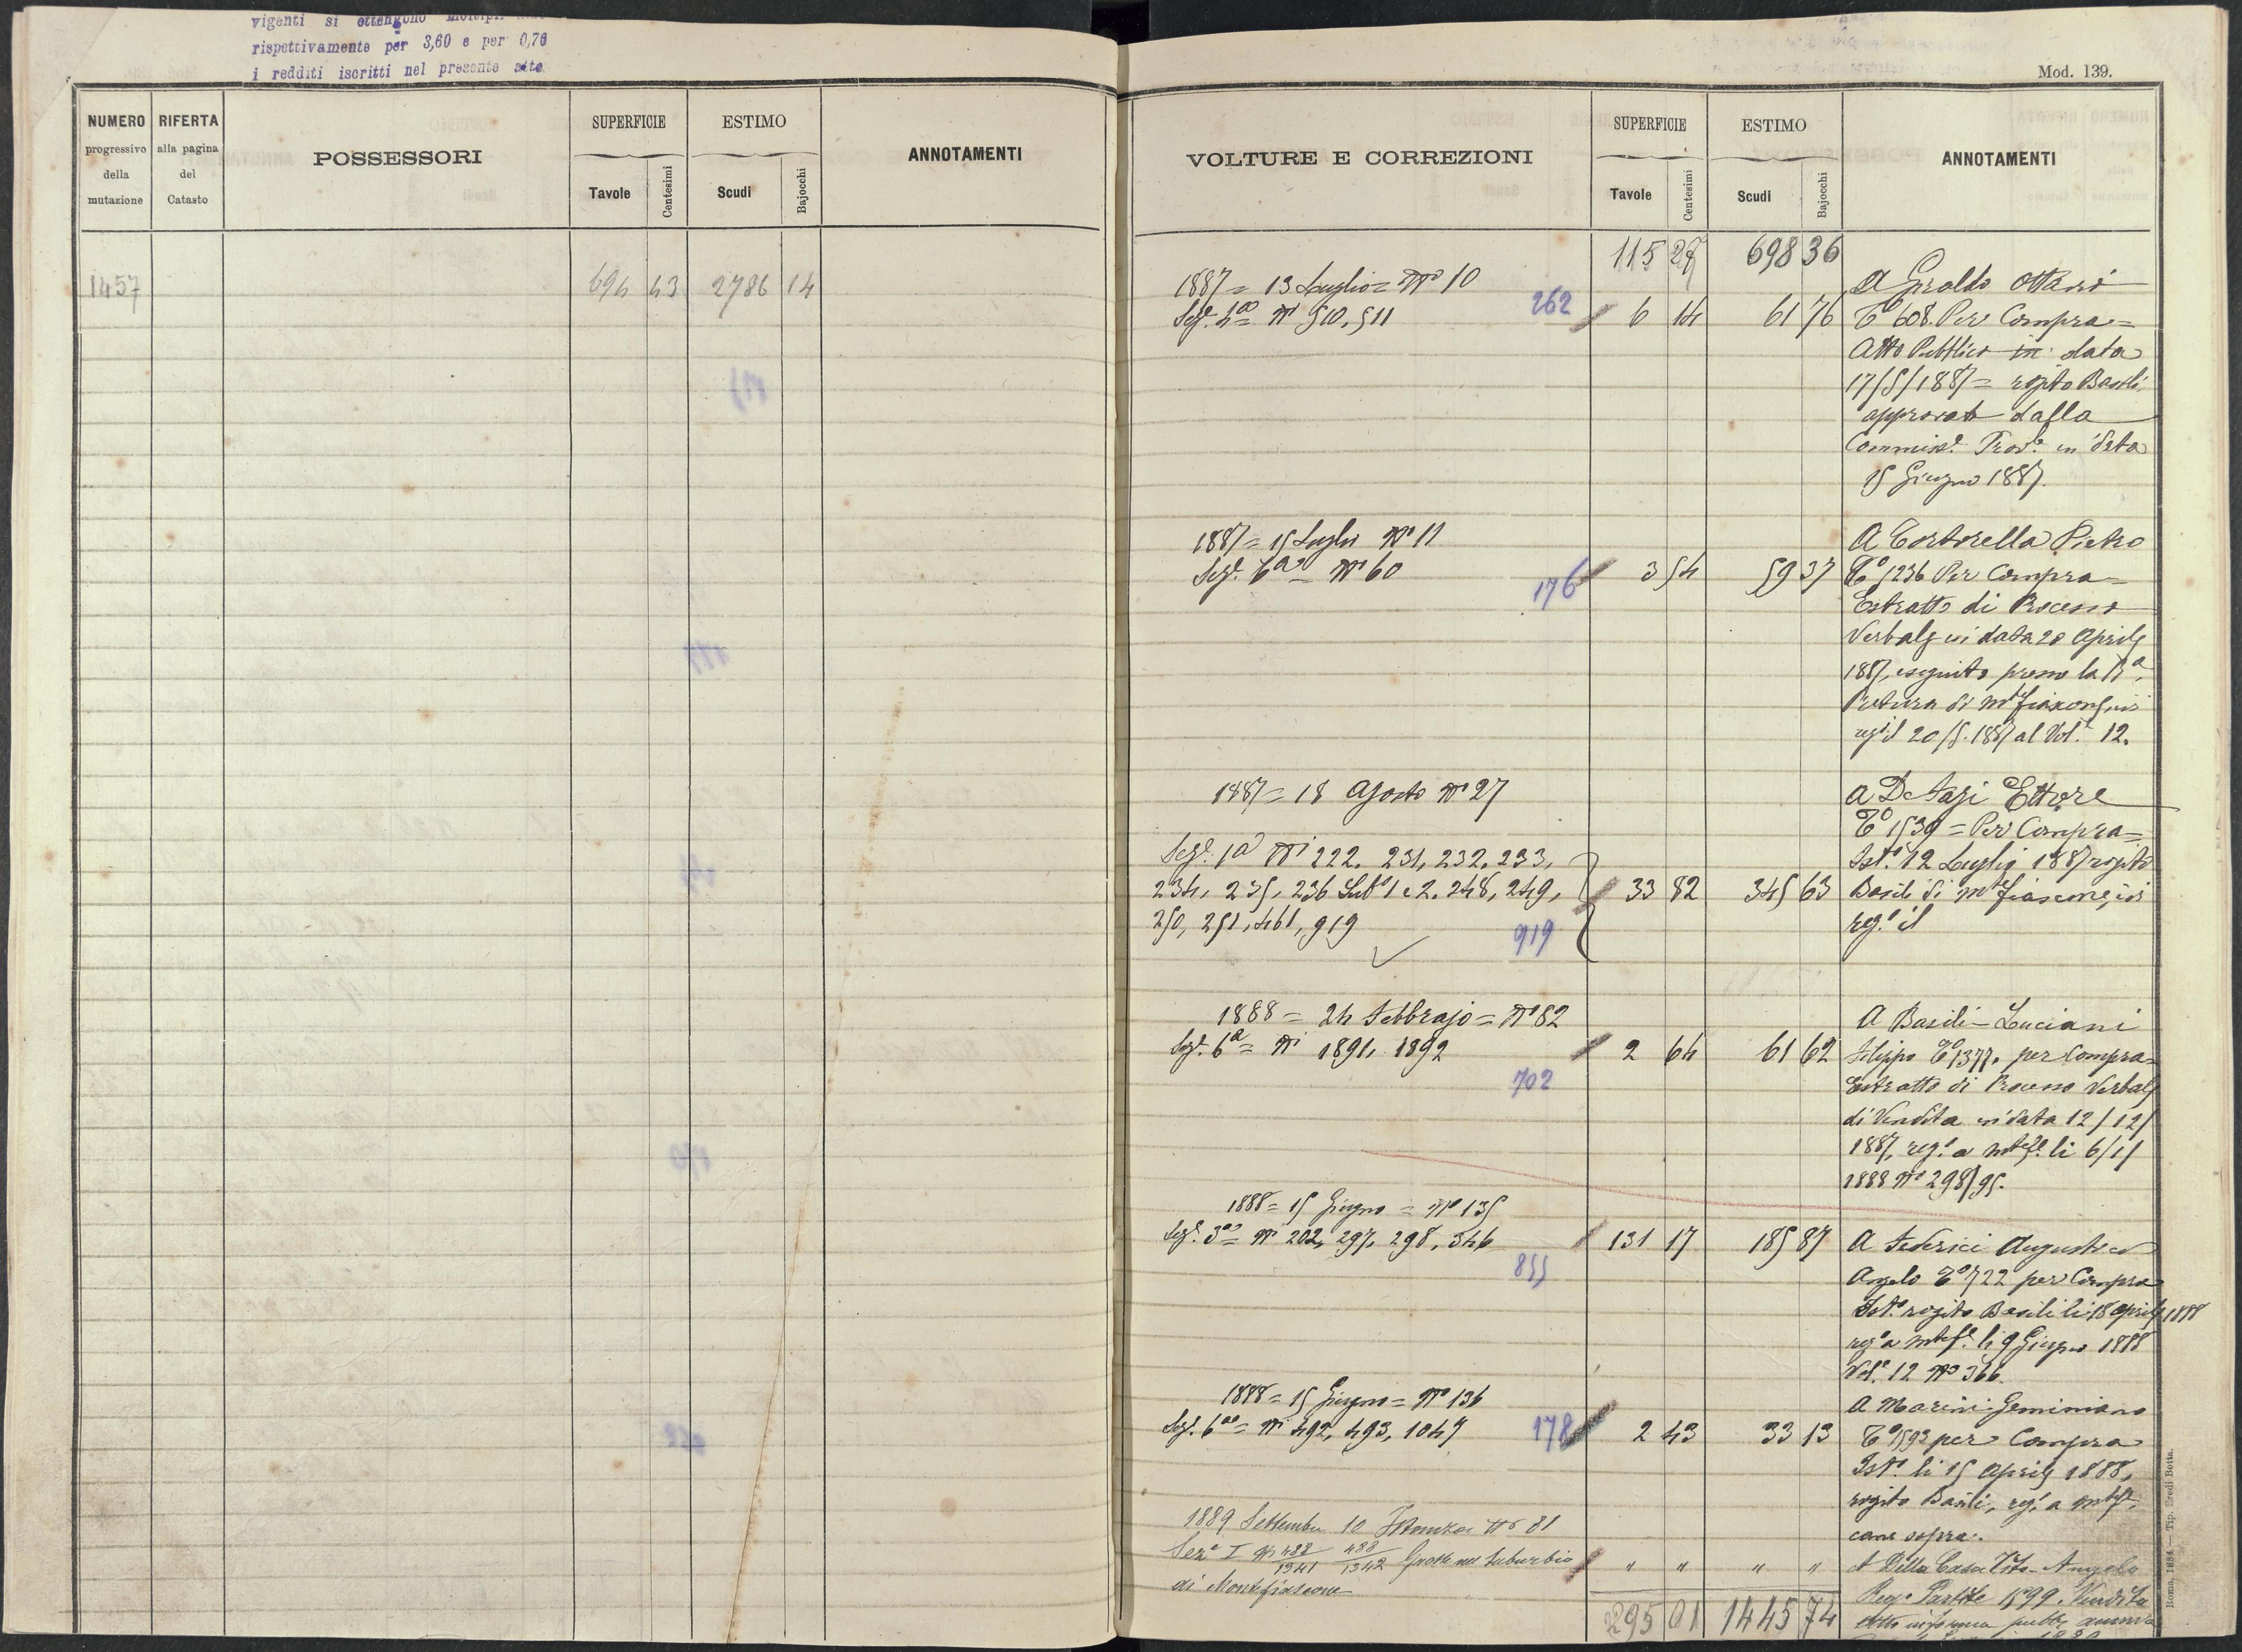 vigenti si ottengono
rispettivamente per 3,60 e per 0,76
i redditi iscritti nel presente atto
NUMERO
progressivo
della
mutazione
RIFERTA
alla pagina
del
Catasto
POSSESSORI
SUPERFICIE
Tavole
Centesimi
ESTIMO
Scudi
Bajocchi
ANNOTAMENTI
1457 694 43 2786 14
Mod. 139.
VOLTURE E CORREZIONI
SUPERFICIE
Tavole
Centesimi
ESTIMO
Scudi
Bajocchi
ANNOTAMENTI
115 27 698 36
1887 = 13 Luglio = N° 10
Sez.e 4a= Ni 510, 511
262
6 14 61 76
A Giraldo Ottavio
T° 608. Per Compra =
Atto Pubblico in data
17/5/1887 = rogito Basili
approvato dalla
Commiss.e Prov.le in data
15 Giugno 1887.
1887 = 15 Luglio N° 11
Sez.e 6a = N° 60
176
3 54 59 37
A Tortorella Pietro
T° 1236 Per Compra =
Estratto di Processo
Verbale in data 20 Aprile
1887, eseguito presso la Ra.
Pretura di Mtefiascone, ivi
reg° il 20/5.1887 al Vol.e 12.
1887 = 18 Agosto N° 27
Sez.e 1a Ni 222. 231, 232, 233,
234, 235, 236 Sub° 1 e 2. 248, 249,
250, 251, 461, 919
919
33 82 345 63
A DeAngi Ettore
T° 1539 = Per Compra =
Ist.o 12 Luglio 1887 rogito
Basili di Mtefiascone, ivi
reg.o il
1888 = 24 Febbrajo = N° 82
Sez.e 6a = Ni 1891, 1892
702
2 64 61 62
A Basili-Luciani
Filippo T° 1377. per Compra =
Estratto di Processo Verbale
di Vendita in data 12/12/
1887, reg.o a Mtef.e li 6/1/
1888 N° 298/95.
1888 = 15 Giugno = N° 135
Sez.e 3a= Ni 202, 297, 298, 546
855
131 17 185 87
A Federici Augusto ed
Angelo T° 722 per Compra
Ist.o rogito Basili li 18 Aprile 1888
reg° a Mtef.e li 9 Giugno 1888
Vol.e 12 N° 366.
1888 = 15 Giugno = N° 136
Sez.e 6a = Ni 492, 493, 1047
178
2 43 33 13
A Marini Geminiano
T° 1592 per Compra
Ist.o li 15 Aprile 1888,
rogito Basili, reg.o a Mtef.e
come sopra.
1889 Settembre 10 Istanza N° 81
Sez.e I Ni 488/1341 488/1342 Grotte nel Suburbio
di Montefiascone
" " " "
A Della Casa Vito-Angelo
Reg° Partite 1599. Vendita
295 01 1445 74
Roma, 1884 — Tip. Eredi Botta.